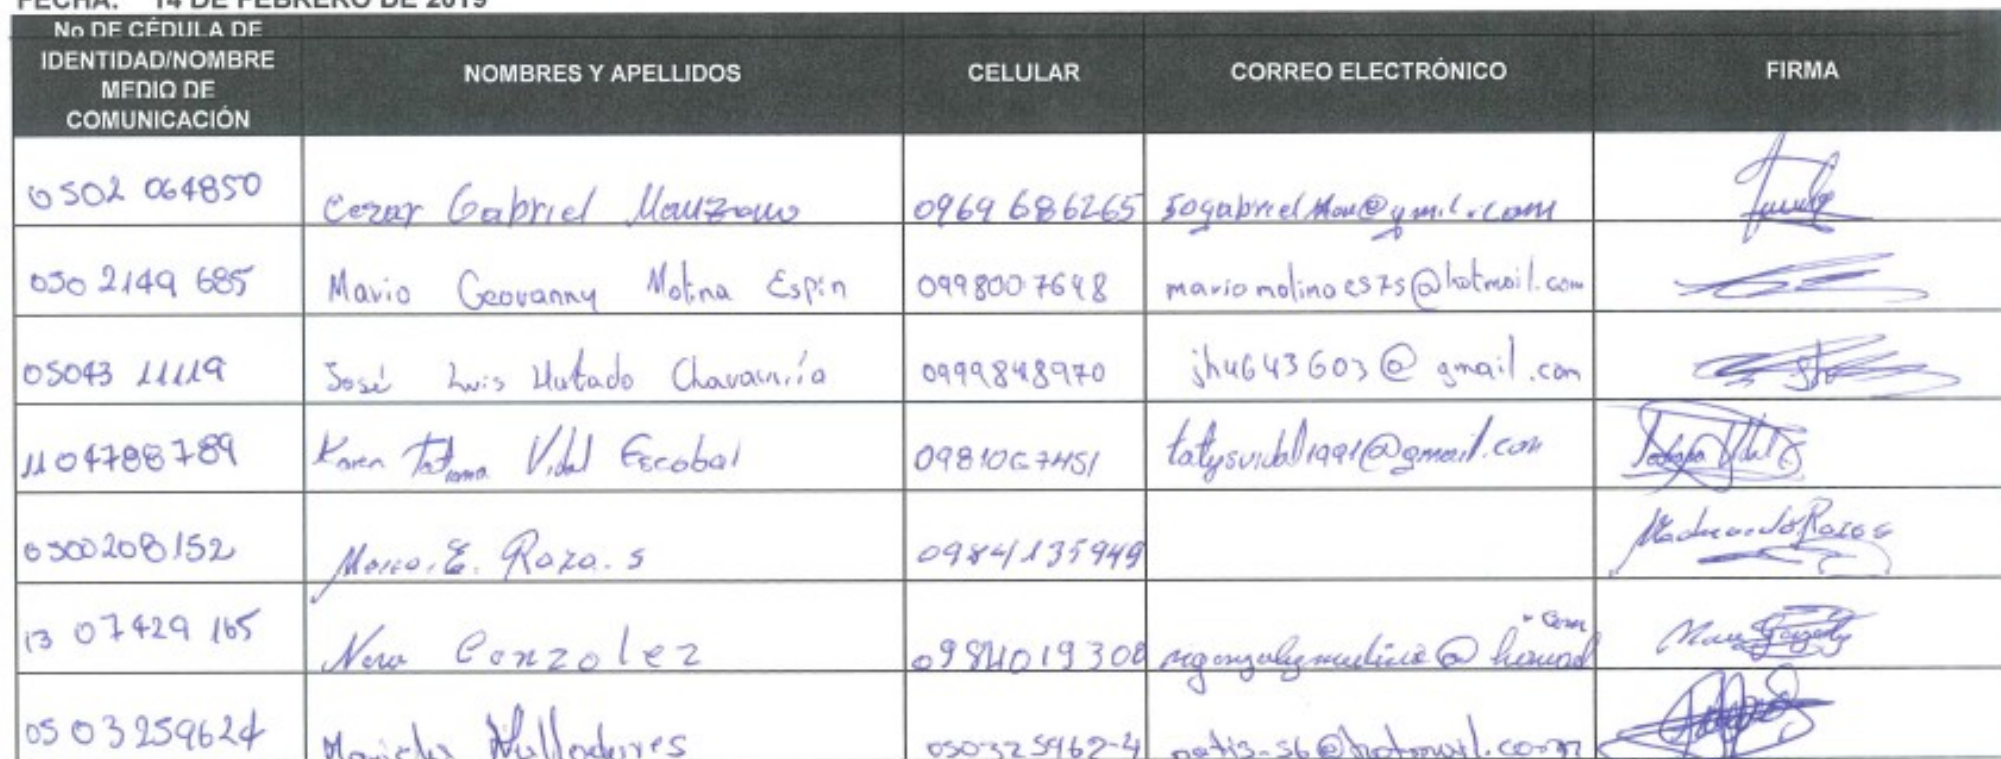 FECHA: 14 DE FEBRERO DE 2019
No DE CÉDULA DE
IDENTIDAD/NOMBRE
MEDIO DE
COMUNICACIÓN
NOMBRES Y APELLIDOS
CELULAR
CORREO ELECTRÓNICO
FIRMA
0502 064850 Cezar Gabriel Manzano 0969 686265
050 2149 685 Mario Geovanny Molina Espin 0998007648 mariomolinaes75@hotmail.com
05043 11119 José Luis Hutado Chavarría 0999848970 jh4643603@gmail.com
1104788789 Karen Tatiana Vidal Escobal 0981067451 tatysvidal1991@gmail.com
0500208152 Marco. E. Razo. s 0984135949
13 07429 165 Nora Gonzalez 0984019308
05 03259624 050325962-4